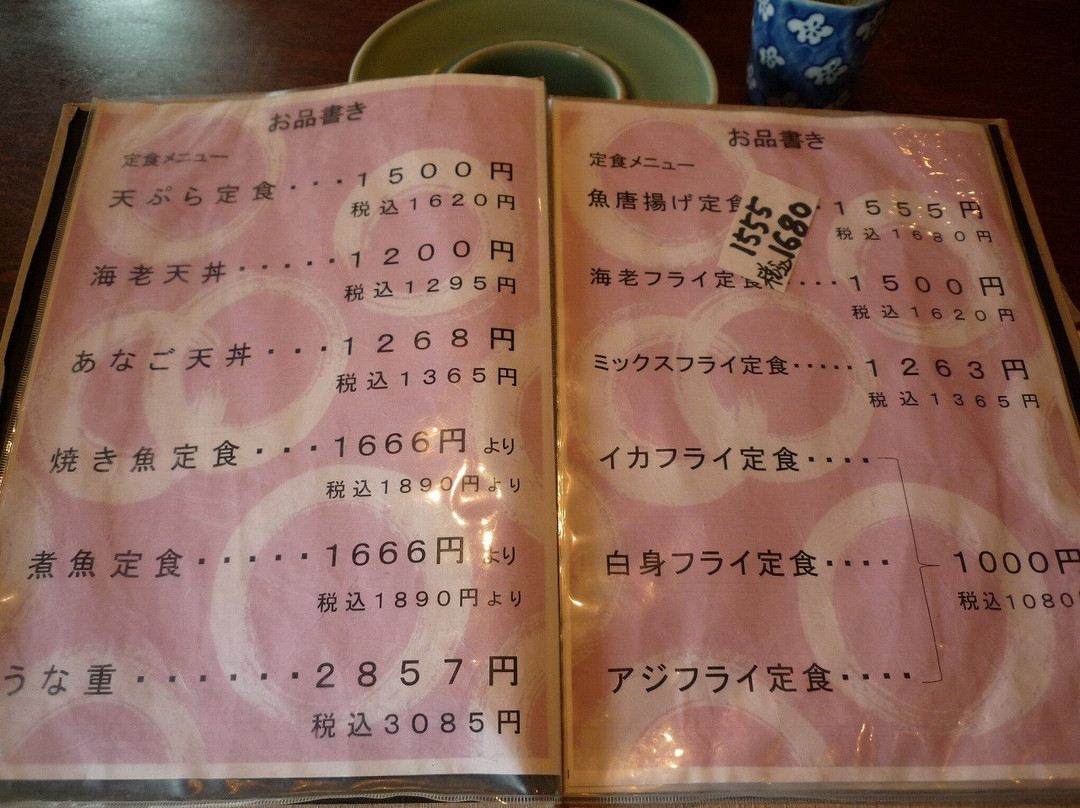 お品書き
定食メニュー
天ぷら定食・・・１５００円
税込１６２０円
海老天丼・・・・・１２００円
税込１２９５円
あなご天丼・・・１２６８円
税込１３６５円
焼き魚定食・・・1666円より
税込１８９０円より
煮魚定食・・・・・1666円より
税込１８９０円より
うな重・・・・・・・２８５７円
税込３０８５円
お品書き
定食メニュー
魚唐揚げ定食・１５５５円
税込１６８０円
1555
税込1680
海老フライ定食・・・１５００円
税込１６２０円
ミックスフライ定食・・・・・１２６３円
税込１３６５円
イカフライ定食・・・・
白身フライ定食・・・・
1000円
税込1080
アジフライ定食・・・・